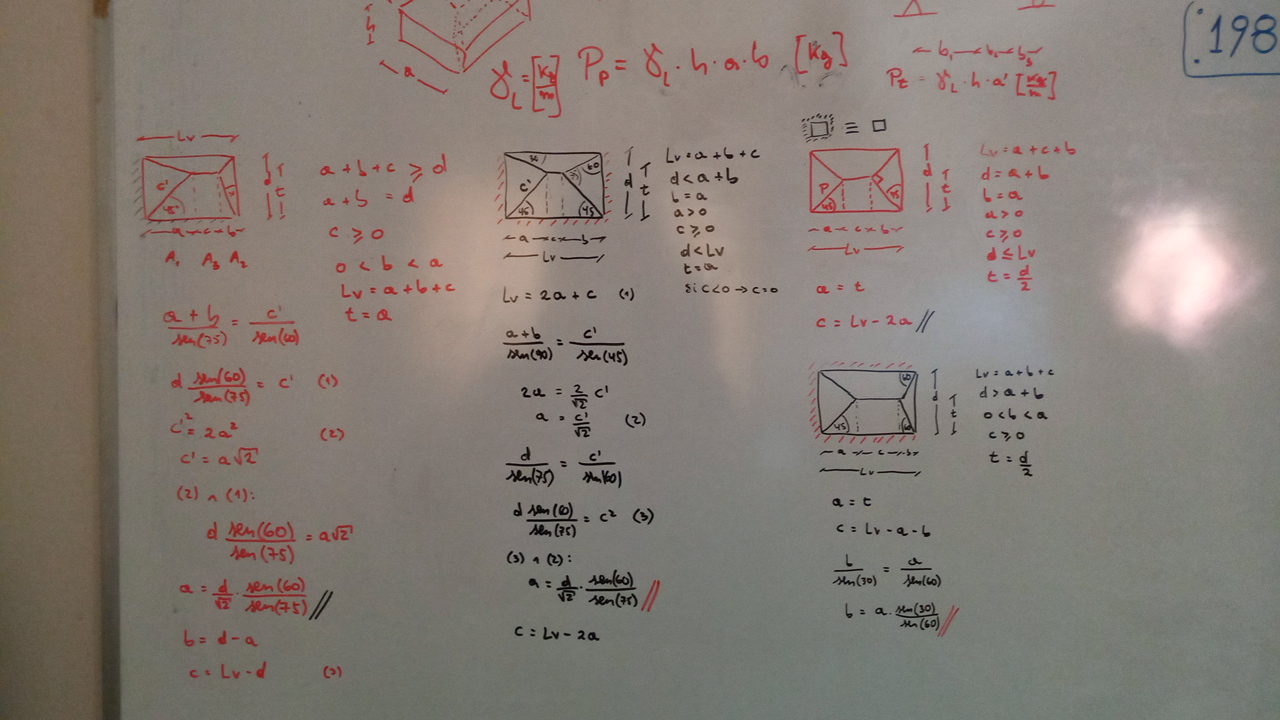 h
a
γ_L = [kg/m] P_p = γ_L · h · a · b [kg]
b₁ b₂ b₃
P_t = γ_L · h · a' [kg/m]
.198
Lv
c'
45°
d t
a c b
A₁ A₃ A₂
a + b + c ⩾ d
a + b = d
c ⩾ 0
0 < b < a
Lv = a + b + c
t = a
a + b / sen(75) = c' / sen(60)
d sen(60) / sen(75) = c' (1)
c'² = 2a² (2)
c' = a√2
(2) ∧ (1):
d sen(60) / sen(75) = a√2
a = d/√2 · sen(60) / sen(75) //
b = d - a
c = Lv - d (3)
c'
60
45 45
d t
a c b
Lv
Lv = a + b + c
d < a + b
b = a
a > 0
c ⩾ 0
d < Lv
t = a
Si c < 0 → c = 0
Lv = 2a + c (1)
a + b / sen(90) = c' / sen(45)
2a = 2/√2 c'
a = c'/√2 (2)
d / sen(75) = c' / sen(60)
d sen(60) / sen(75) = c² (3)
(3) ∧ (2):
a = d/√2 · sen(60) / sen(75) //
c = Lv - 2a
□ ≡ □
P
45 45
d t
a c b
Lv
Lv = a + c + b
d = a + b
b = a
a > 0
c ⩾ 0
d ⩽ Lv
t = d/2
a = t
c = Lv - 2a //
60
45 60
d t
a c b
Lv
Lv = a + b + c
d > a + b
0 < b < a
c ⩾ 0
t = d/2
a = t
c = Lv - a - b
b / sen(30) = a / sen(60)
b = a · sen(30) / sen(60) //